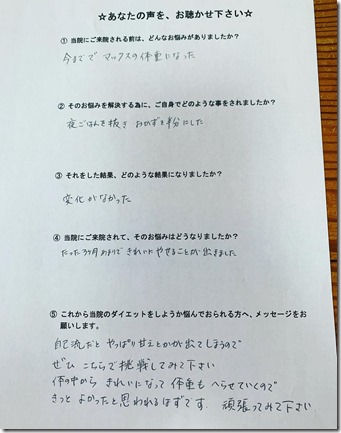 ☆あなたの声を、お聴かせ下さい☆
① 当院にご来院される前は、どんなお悩みがありましたか？
今までで マックスの体重になった
② そのお悩みを解決する為に、ご自身でどのような事をされましたか？
夜ごはんを抜き おかずを半分にした
③ それをした結果、どのような結果になりましたか？
変化がなかった
④ 当院にご来院されて、そのお悩みはどうなりましたか？
たった3ヶ月あまりで きれいに やせることが 出きました
⑤ これから当院のダイエットをしようか悩んでおられる方へ、メッセージをお
願いします。
自己流だと やっぱり甘えとかが出てしまうので
ぜひ こちらで挑戦してみて下さい
体の中から きれいになって 体重も へらせていくので
きっと よかったと思われるはずです. 頑張ってみて下さい